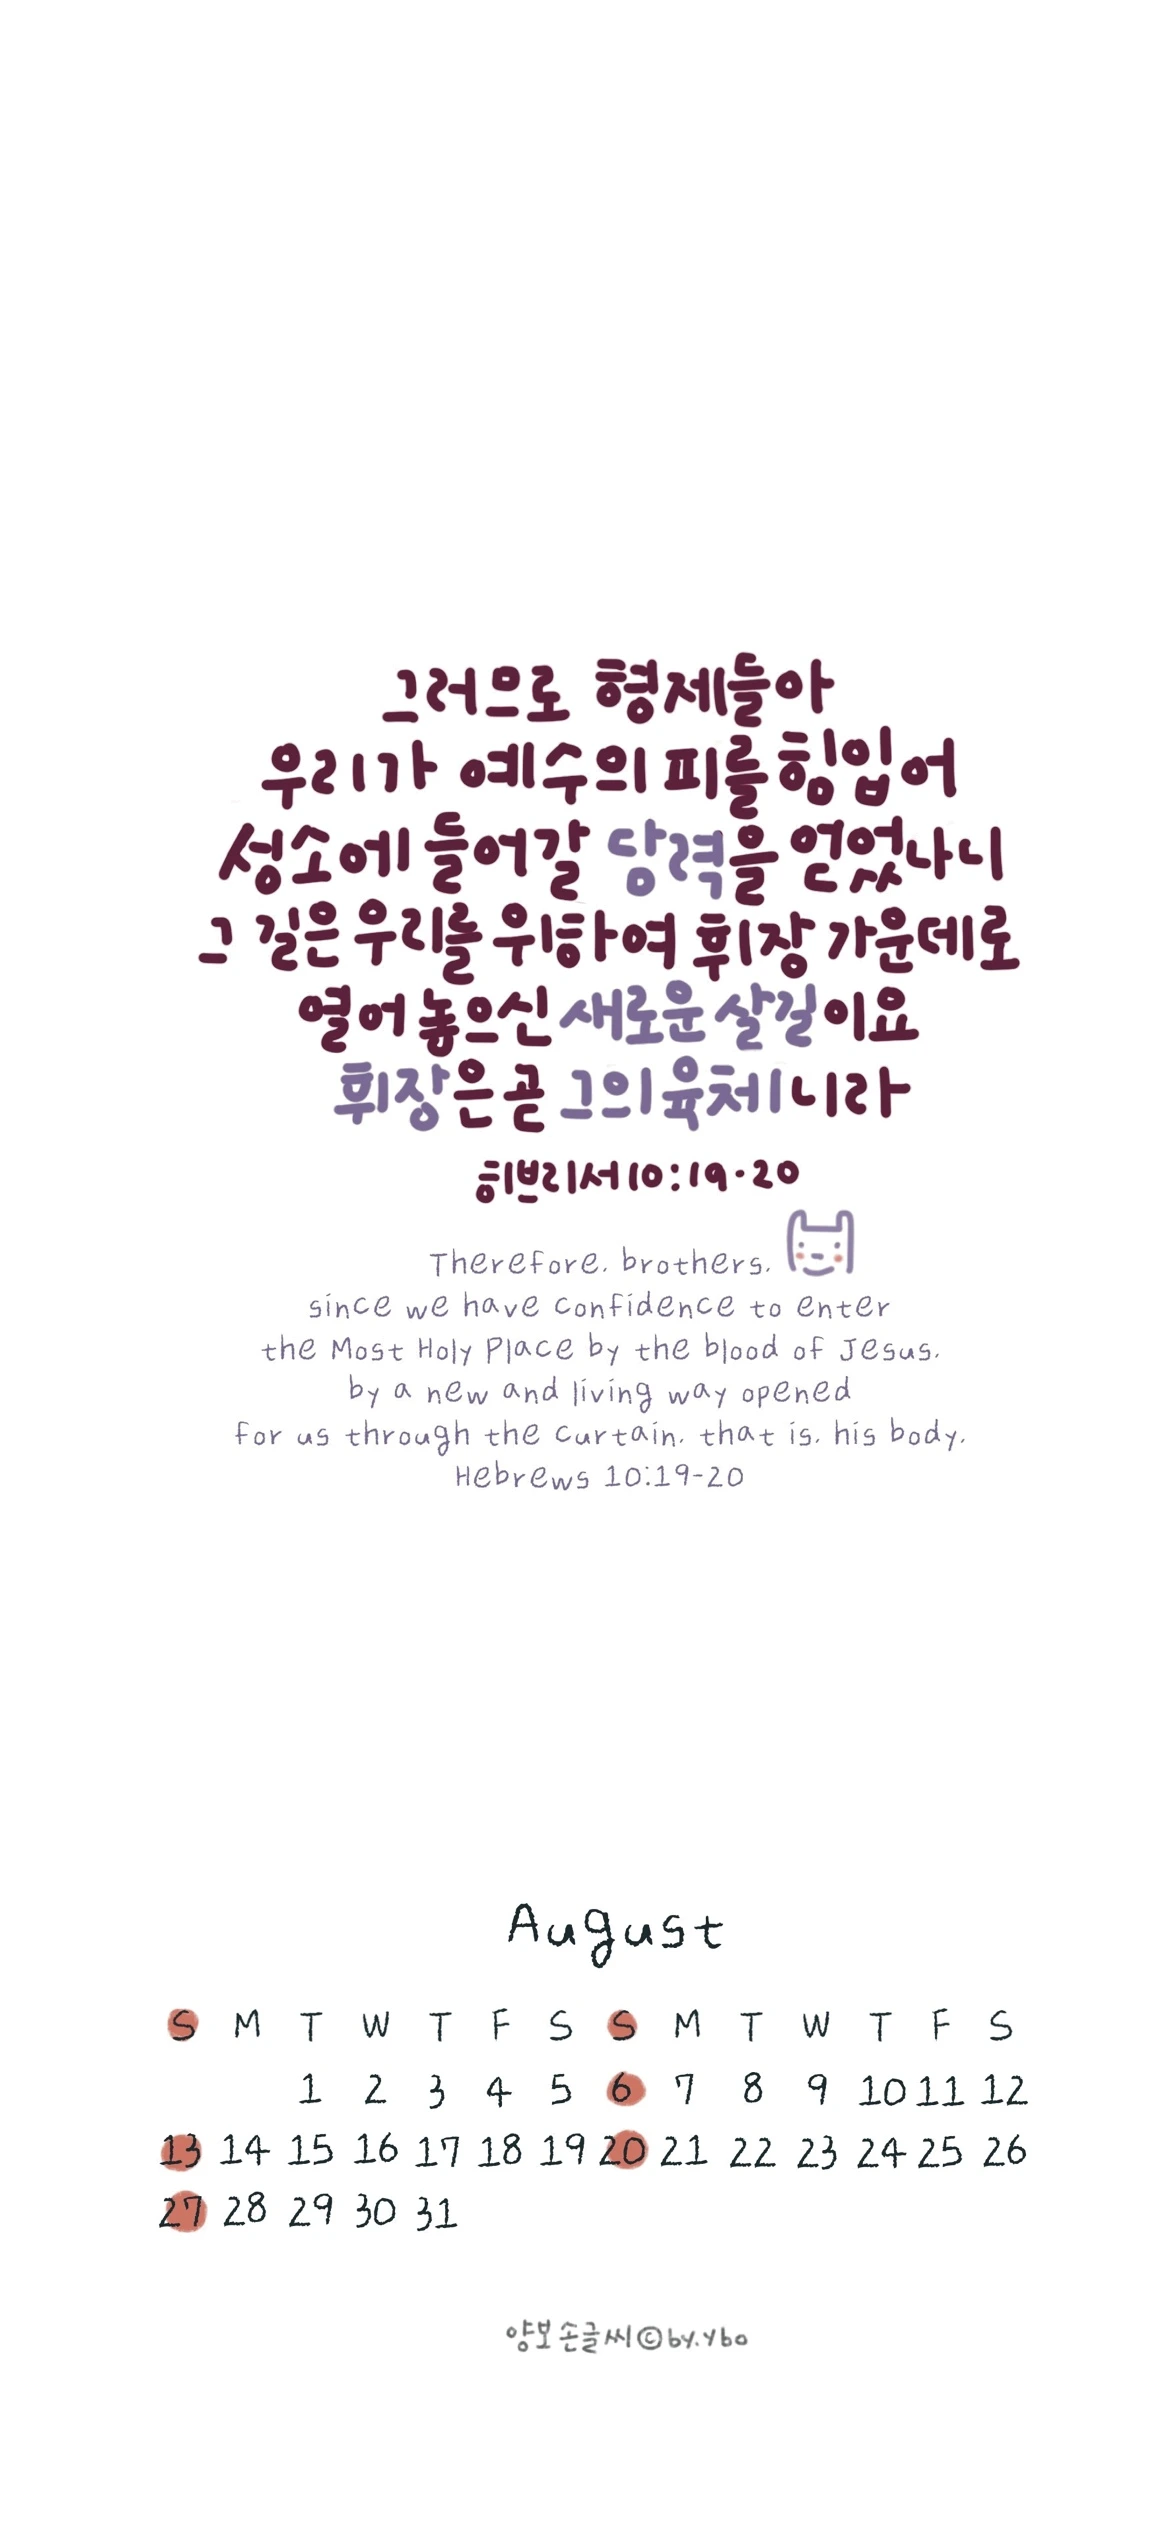 그러므로 형제들아
우리가 예수의 피를 힘입어
성소에 들어갈 담력을 얻었나니
그 길은 우리를 위하여 휘장 가운데로
열어 놓으신 새로운 살길이요
휘장은 곧 그의 육체니라
히브리서 10:19·20
Therefore, brothers,
since we have confidence to enter
the Most Holy Place by the blood of Jesus,
by a new and living way opened
for us through the curtain, that is, his body,
Hebrews 10:19-20
August
S M T W T F S S M T W T F S
1 2 3 4 5 6 7 8 9 10 11 12
13 14 15 16 17 18 19 20 21 22 23 24 25 26
27 28 29 30 31
양보손글씨©by.ybo